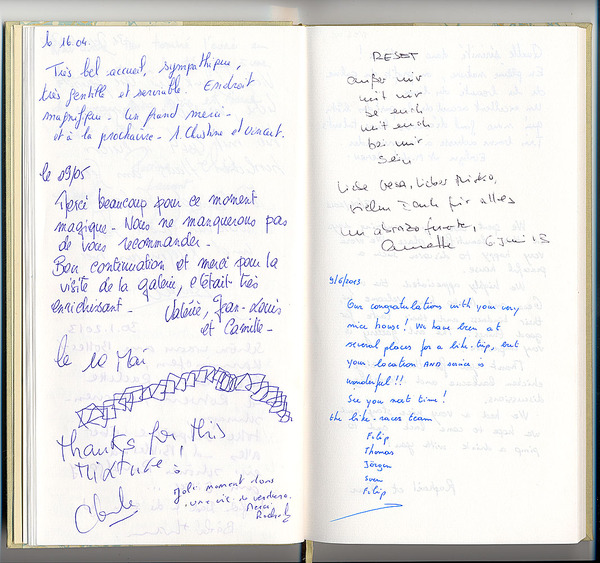 le 16.04.
Très bel accueil, sympathique,
très gentille et serviable. Endroit
magnifique. Un grand merci
et à la prochaine - A. Christine et Vincent.
le 09/05
Merci beaucoup pour ce moment
magique. Nous ne manquerons pas
de vous recommander.
Bon continuation et merci pour la
visite de la galerie, c'était très
enrichissant.
Valérie, Jean-Louis
et Camille -
le 10 Mai
Thanks for this
mixture,
à
Joli moment dans
une vie de vendeuse.
Merci
RESET
außer mir
mit mir
be euch
mit euch
bei mir
sein
Liebe Vesa, lieber Mirko,
vielen Dank für alles
un abrazo fuerte,
Annette 6 Juni 13
9/6/2013
Our congratulations with your very
nice house! We have been at
several places for a bike-trip, but
your location AND service is
wonderful!!
See you next time!
the bike-racers team
Filip
Thomas
Jörgen
Sven
Filip